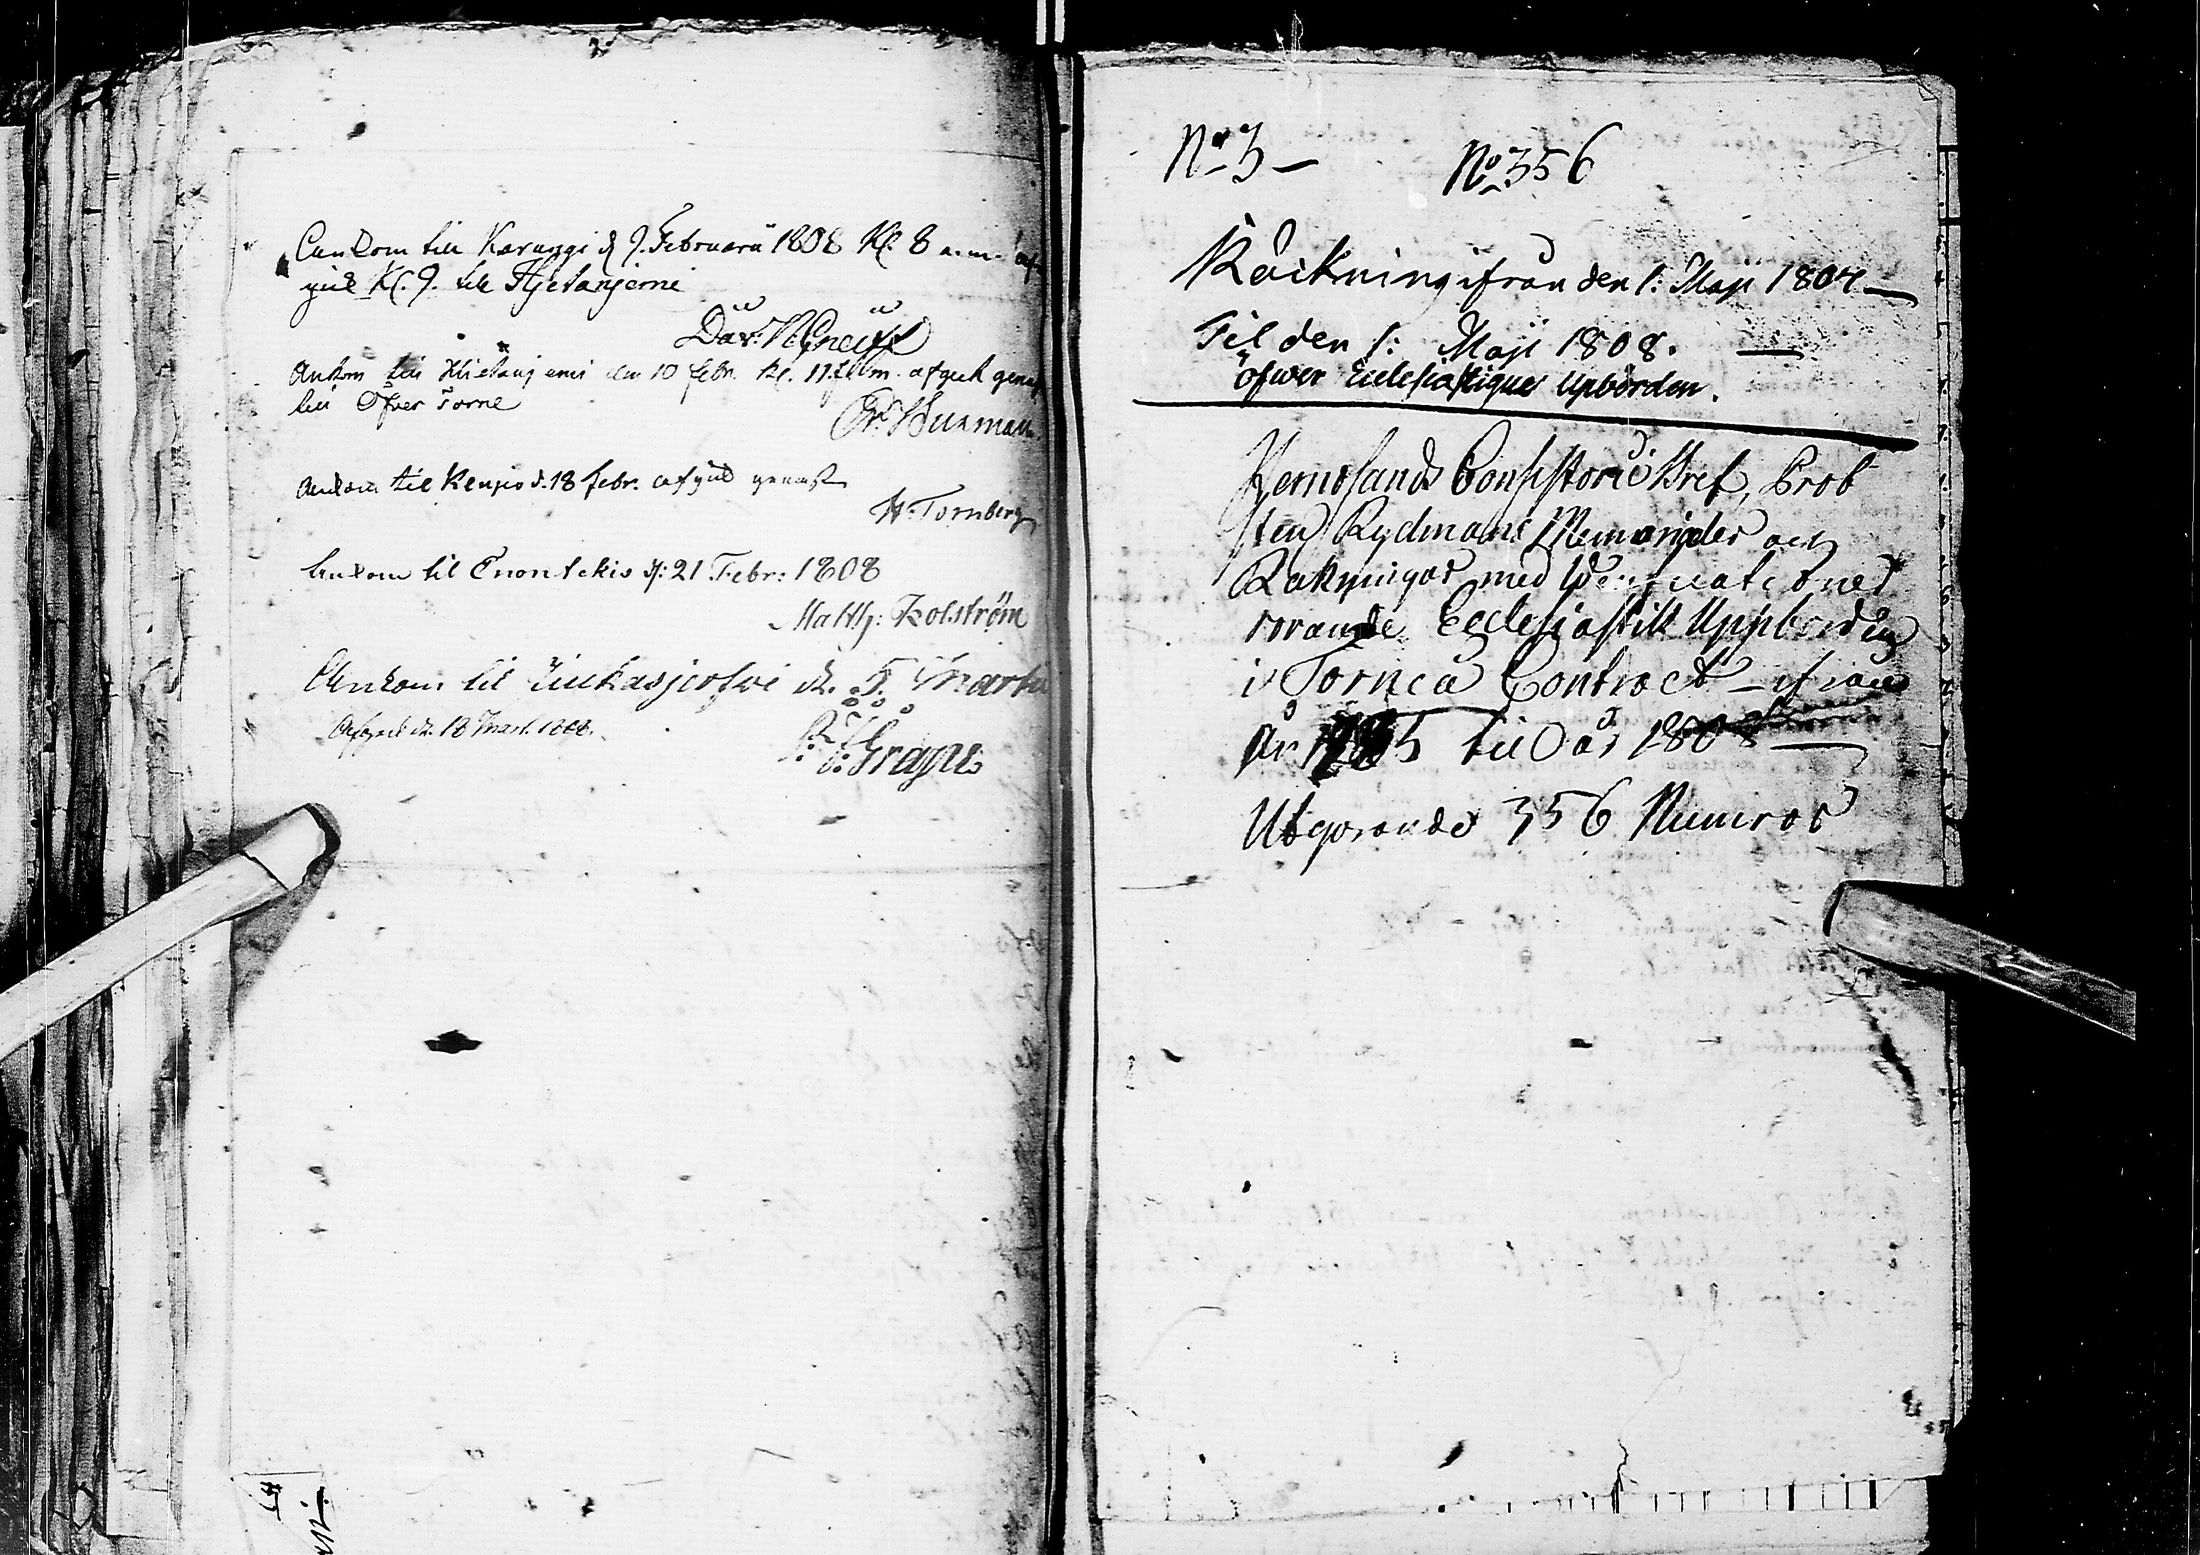 Ankom till Karungi d 9. Februarii 1808 Kl. 8 a.m. af
gick Kl. 9. till Hjetanjemi
Dav: N. Gneiff
Ankom till Hietanjemi den 10 febr. kl. 11 f.m. afgick genast
till Öfver Torne
Er. Burman
Ankom till Kengis d. 18 febr. afgick genast
W. Tornberg
Ankom til Enontekis d: 21 Febr: 1808
Matth: Kolström
Ankom til Jukasjerfwi d. 5. Martii
Afgick d. 18 Mart. 1808.
Grape
No 3 –
No 356
Räckning ifrån den 1: Maji 1807 –
Til den 1: Maji 1808. –
öfwer Ecclesiastique Upbörden.
Hernösands Consistorii Bref, Prob
sten Rydmans Memorialer och
Räkningar med Werificationer
rörande Ecclesiastik Uppbörden
i Torneå Contract – ifrån
År 5 till år 1808 –
Utgörande 356 Numror